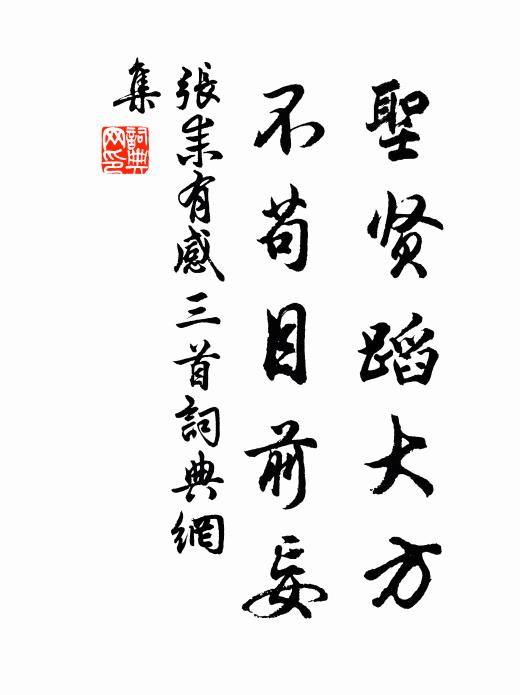 聖贤蹈大方
不苟目前妄
張耒有感三首詞典網
集
詞典
网印